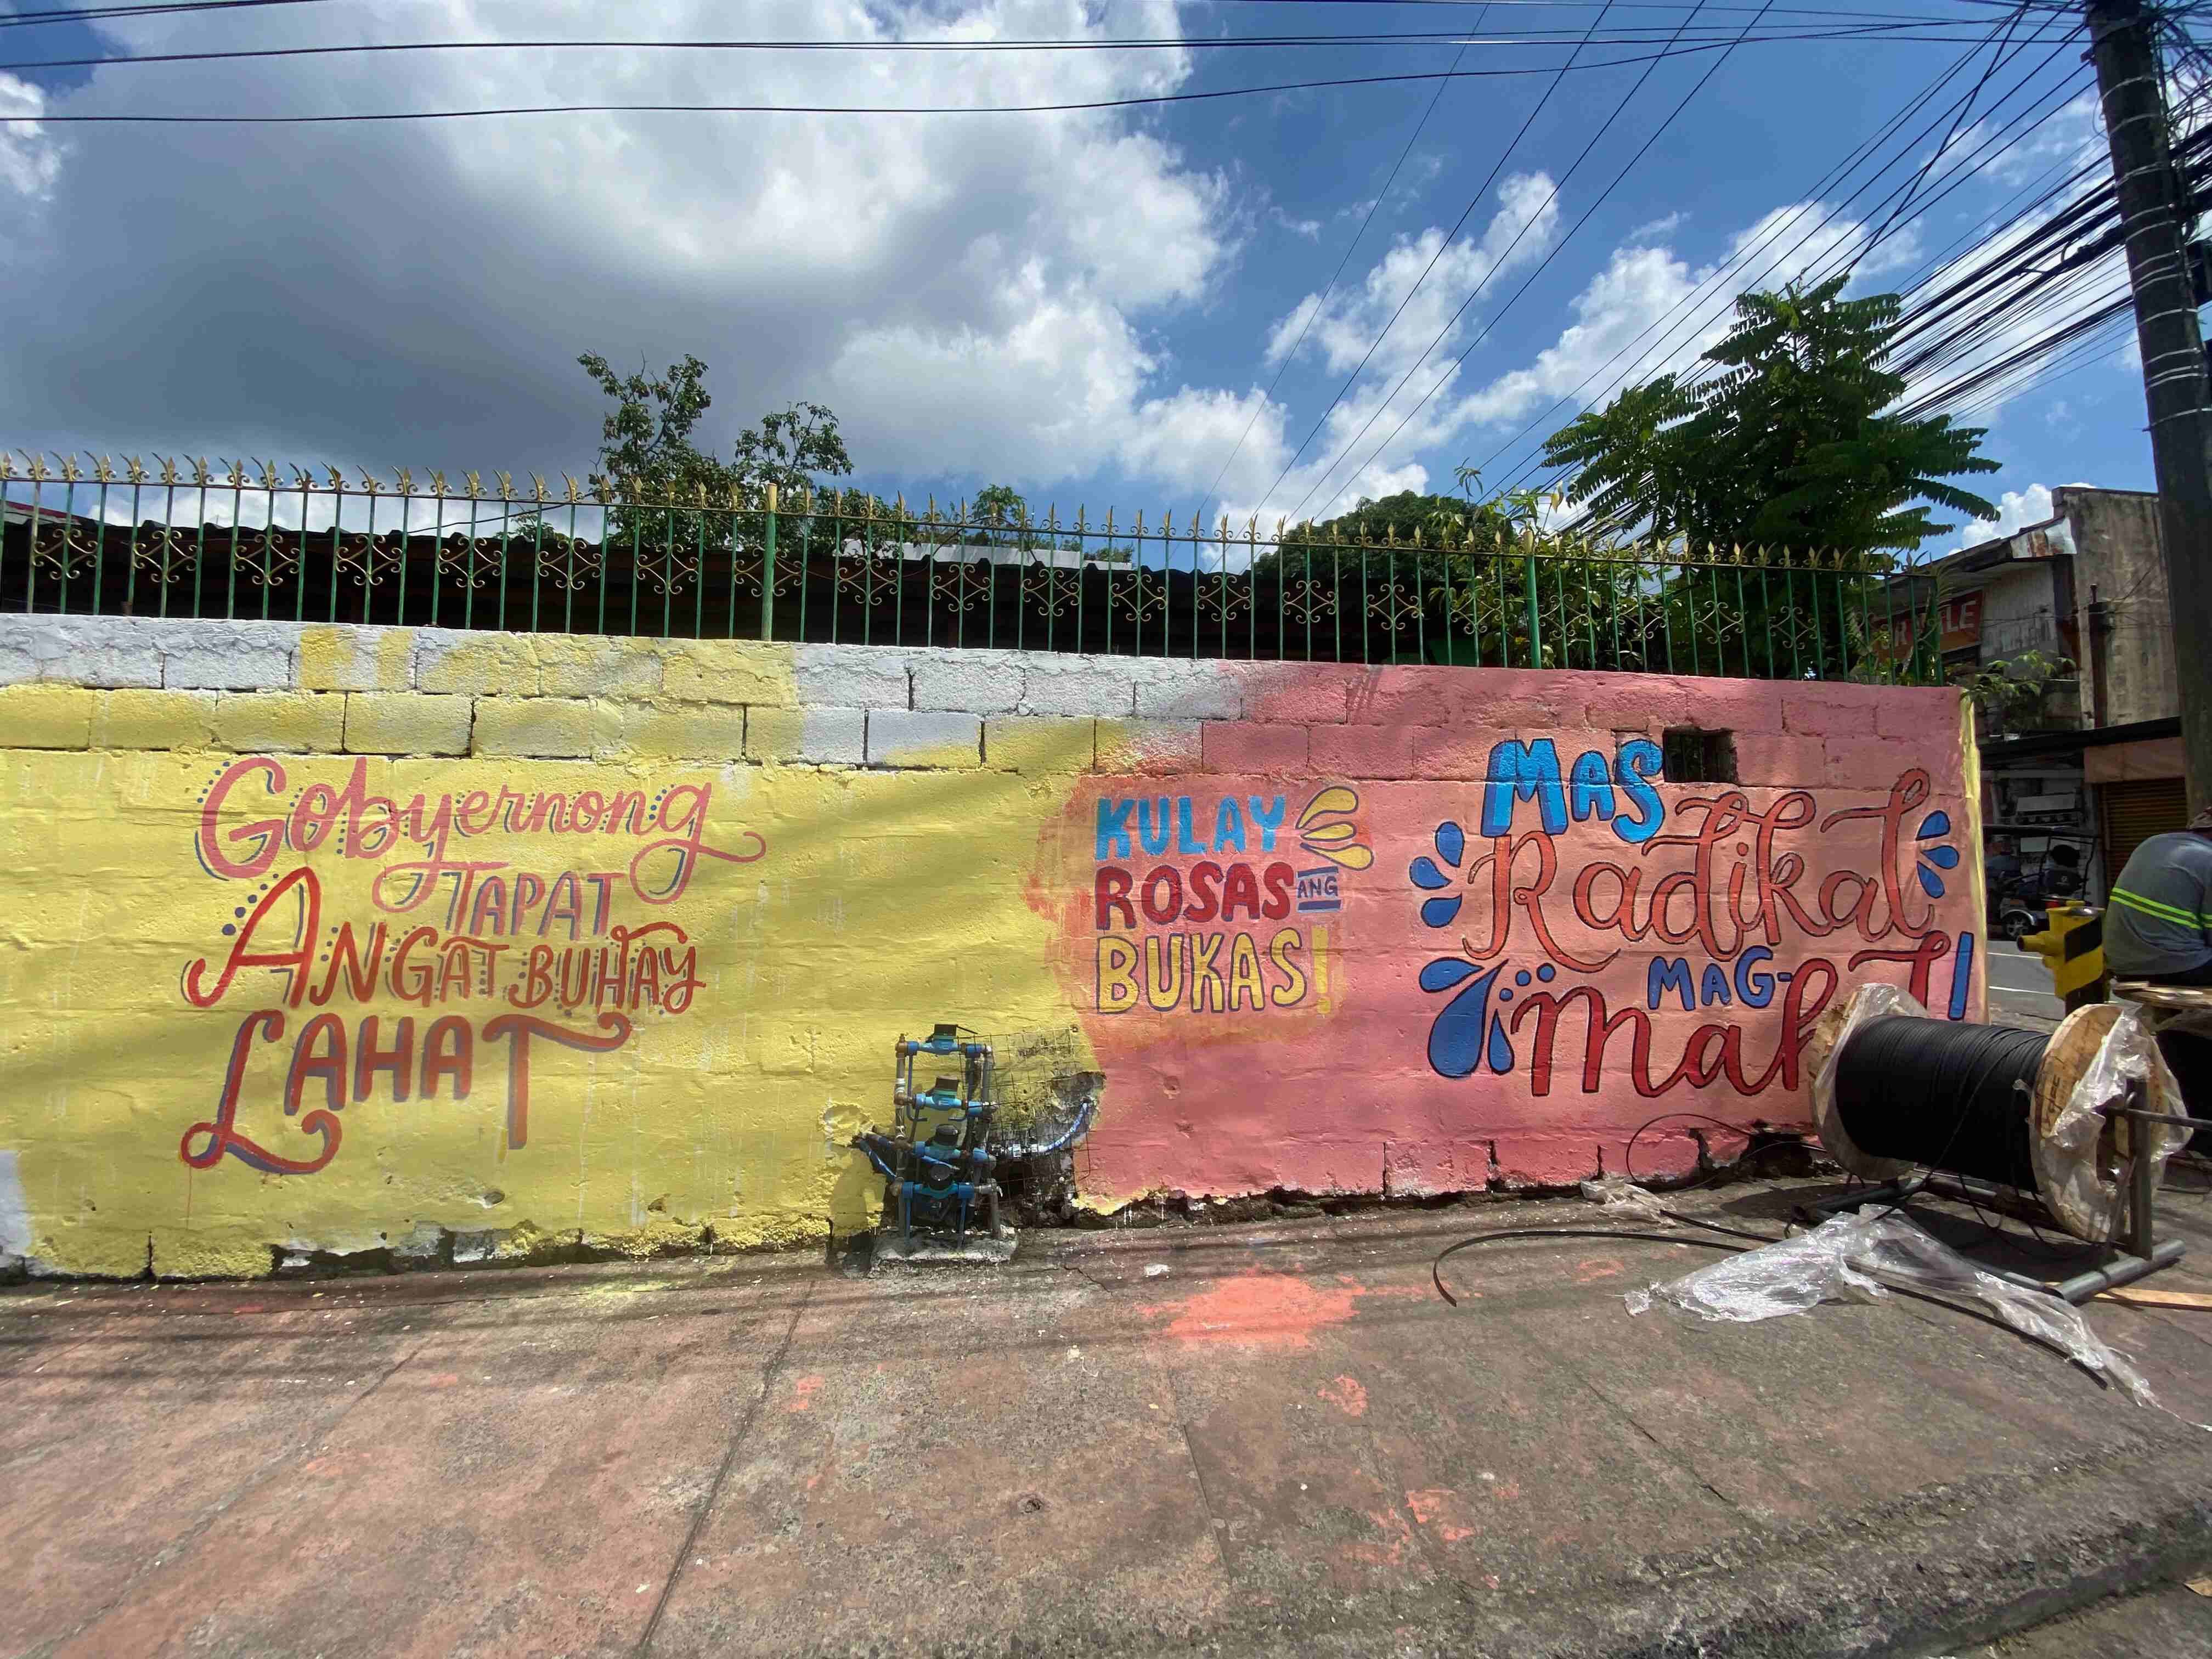 Gobyernong
TAPAT
ANGAT BUHAY
LAHAT
KULAY
ROSAS ANG
BUKAS!
MAS
Radikal
MAG-